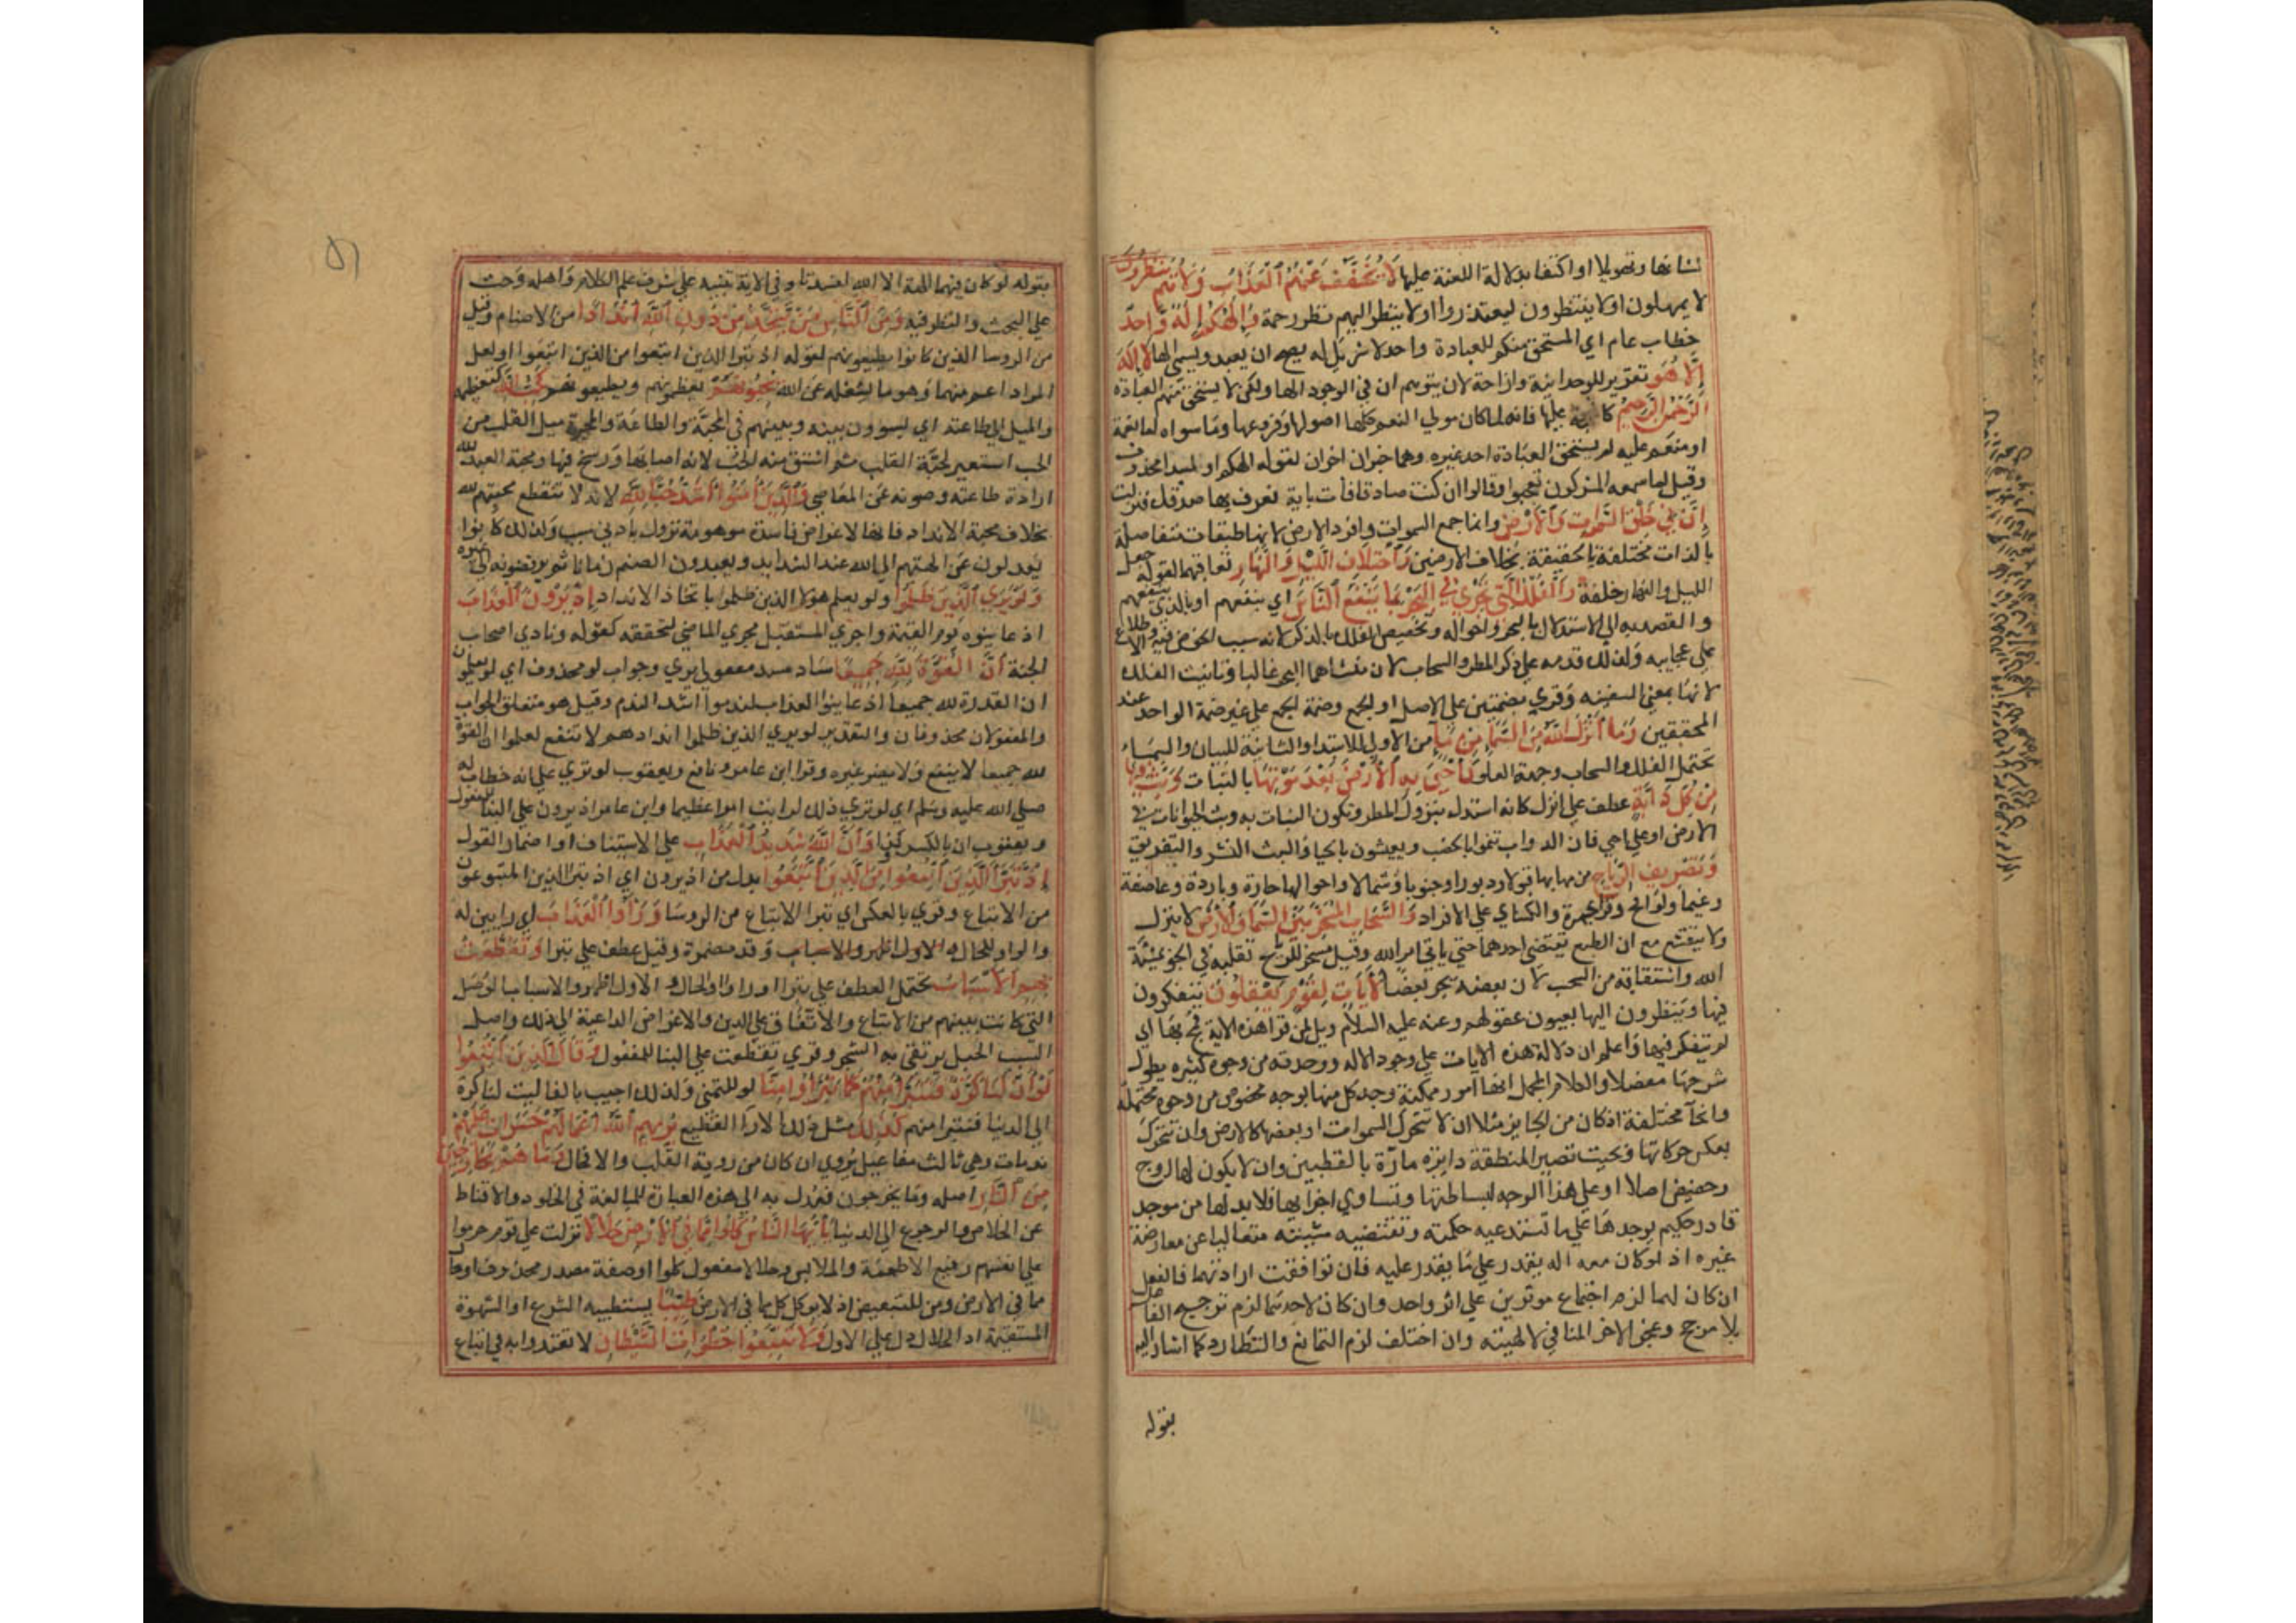 لشانها وتهويلا او اكتفا بدلالة اللعنة عليها لَا يُخَفَّفُ عَنْهُمُ ٱلْعَذَابُ وَلَا هُمْ يُنْظَرُونَ
لا يمهلون او لا ينتظرون ليعتذروا او لا ينظر اليهم نظر رحمة وَإِلَهُكُمْ إِلَهٌ وَاحِدٌ
خطاب عام اي المستحق منكم للعبادة واحد لا شريك له يصح ان يعبد ويسمى الها لَا إِلَهَ
إِلَّا هُوَ تقرير للوحدانية وازاحة لان يتوهم ان في الوجود الها ولكن لا يستحق منهم العبادة
ٱلرَّحْمَنُ ٱلرَّحِيمُ كالحجة عليها فانه لما كان مولي النعم كلها اصولها وفروعها وما سواه اما نعمة
او منعم عليه لم يستحق العبادة احد غيره وهما خبران اخران لقوله الهكم او لمبتدا محذوف
وقيل لما سمعه المشركون تعجبوا وقالوا ان كنت صادقا فات باية نعرف بها صدقك فنزلت
إِنَّ فِي خَلْقِ ٱلسَّمَوَاتِ وَٱلْأَرْضِ وانما جمع السموات وافرد الارض لانها طبقات متفاصلة
بالذات مختلفة بالحقيقة بخلاف الارضين وَٱخْتِلَافِ ٱللَّيْلِ وَٱلنَّهَارِ تعاقبهما لقوله جعل
الليل والنهار خلفة وَٱلْفُلْكِ ٱلَّتِي تَجْرِي فِي ٱلْبَحْرِ بِمَا يَنْفَعُ ٱلنَّاسَ اي بنفعهم او بالذي ينفعهم
والقصد به الي الاستدلال بالبحر واحواله وتخصيص الفلك بالذكر لانه سبب الخوض فيه والاطلاع
علي عجايبه ولذلك قدمه علي ذكر المطر والسحاب لان منشاهما البحر غالبا وتانيث الفلك
لانها بمعني السفينه وقري بضمتين علي الاصل او الجمع وضمة الجمع علي غير ضمة الواحد عند
المحققين وَمَا أَنْزَلَ ٱللَّهُ مِنَ ٱلسَّمَاءِ مِنْ مَاءٍ من الاولي للابتدا والثانية للبيان والسماء
تحتمل الفلك والسحاب وجهة العلو فَأَحْيَى بِهِ ٱلْأَرْضَ بَعْدَ مَوْتِهَا بالنبات وَبَثَّ فِيهَا
مِنْ كُلِّ دَابَّةٍ عطف علي انزل كانه استدل بنزول المطر وتكون النبات به وبث الحيوانات في
الارض او علي احيي فان الدواب تنموا بالخصب ويعيشون بالحيا والبث النشر والتفريق
وَتَصْرِيفِ ٱلرِّيَاحِ من مهابها قبولا ودبورا وجنوبا وشمالا واحوالها حارة وباردة وعاصفة
وعقيما ولواقح وقرا حمزة والكساي علي الافراد وَٱلسَّحَابِ ٱلْمُسَخَّرِ بَيْنَ ٱلسَّمَاءِ وَٱلْأَرْضِ لا ينزل
ولا ينقشع مع ان الطبع يقتضي احدهما حتي ياتي امر الله وقيل مسخر للرياح تقلبه في الجو بمشيئة
الله واشتقاقه من السحب لان بعضه يجر بعضا لَأَيَاتٍ لِقَوْمٍ يَعْقِلُونَ يتفكرون
فيها وينظرون اليها بعيون عقولهم وعنه عليه السلام ويل لمن قرا هذه الاية فمج بها اي
لم يتفكر فيها واعلم ان دلالة هذه الايات علي وجود الاله ووحدته من وجوه كثيره يطول
شرحها مفصلا والكلام المجمل انها امور ممكنة وجد كل منها بوجه مخصوص من وجوه محتملة
وانحآ مختلفة اذ كان من الجايز مثلا ان لا تتحرك السموات او بعضها كالارض وان تتحرك
بعكس حركاتها وبحيث تصير المنطقة دايره مارة بالقطبين وان لا يكون لها اوج
وحضيض اصلا او علي هذا الوجه لبساطتها وتساوي اجزايها فلا بد لها من موجد
قادر حكيم يوجدها علي ما تستدعيه حكمته وتقتضيه مشيئته متعاليا عن معارضة
غيره اذ لو كان معه اله يقدر علي ما يقدر عليه فان توافقت ارادتهما فالفعل
ان كان لهما لزم اجتماع موثرين علي اثر واحد وان كان لاحدهما لزم ترجيح الفاعل
بلا مرجح وعجز الاخر المنافي لالهيته وان اختلف لزم التمانع والتطارد كما اشار اليه
بقوله
٥١
بقوله لو كان فيهما الهة الا الله لفسدتا وفي الاية تنبيه علي شرف علم الكلام واهله وحث
علي البحث والنظر فيه وَمِنَ ٱلنَّاسِ مَنْ يَتَّخِذُ مِنْ دُونِ ٱللَّهِ أَنْدَادًا من الاصنام وقيل
من الروسا الذين كانوا يطيعونهم لقوله اذ تبرا الذين اتبعوا من الذين اتبعوا ولعل
المراد اعم منهما وهو ما يشغله عن الله يُحِبُّونَهُمْ يعظمونهم ويطيعونهم كَحُبِّ ٱللَّهِ كتعظيمه
والميل الي طاعته اي يسوون بينه وبينهم في المحبة والطاعة والمحبة ميل القلب من
الحب استعير لحبة القلب ثم اشتق منه الحب لانه اصابها ورسخ فيها ومحبة العبد لله
ارادة طاعته وصونه عن المعاصي وَٱلَّذِينَ أَمَنُوا أَشَدُّ حُبًّا لِلَّهِ لانه لا تنقطع محبتهم لله
بخلاف محبة الانداد فانها لاغراض فاسدة موهومة تزول بادني سبب ولذلك كانوا
يعدلون عن الهتهم الي الله عند الشدايد ويعبدون الصنم زمانا ثم يرفضونه الي غيره
وَلَوْ يَرَي ٱلَّذِينَ ظَلَمُوا ولو يعلم هولا الذين ظلموا باتخاذ الانداد إِذْ يَرَوْنَ ٱلْعَذَابَ
اذ عاينوه يوم القيمة واجري المستقبل مجري الماضي لتحققه كقوله ونادي اصحاب
الجنة أَنَّ ٱلْقُوَّةَ لِلَّهِ جَمِيعًا ساد مسد مفعولي يري وجواب لو محذوف اي لو يعلمون
ان القدرة لله جميعا اذ عاينوا العذاب لندموا اشد الندم وقيل هو متعلق الجواب
والمفعولان محذوفان والتقدير لو يري الذين ظلموا اندادهم لا تنفع لعلموا ان القوة
لله جميعا لا ينفع ولا يضر غيره وقرا ابن عامر ونافع ويعقوب لو تري علي انه خطاب له
صلي الله عليه وسلم اي لو تري ذلك لرايت امرا عظيما وابن عامر اذ يرون علي البنا للمفعول
ويعقوب ان بالكسر كذا وَأَنَّ ٱللَّهَ شَدِيدُ ٱلْعَذَابِ علي الاستيناف او اضمار القول
إِذْ تَبَرَّأَ ٱلَّذِينَ ٱتُّبِعُوا مِنَ ٱلَّذِينَ ٱتَّبَعُوا بدل من اذ يرون اي اذ تبرا الذين المتبوعون
من الاتباع وقري بالعكس اي تبرا الاتباع من الروسا وَرَأَوُا ٱلْعَذَابَ اي رايين له
والواو للحال وقد مضمرة وقيل عطف علي تبرا وَتَقَطَّعَتْ
بِهِمُ ٱلْأَسْبَابُ يحتمل العطف علي تبرا او راوا والحال والاول اظهر والاسباب الوصل
التي كانت بينهم من الاتباع والاتفاق علي الدين والاغراض الداعية الي ذلك واصل
السبب الحبل يرتقي به الشجر وقري تقطعت علي البنا للمفعول وَقَالَ ٱلَّذِينَ ٱتَّبَعُوا
لَوْ أَنَّ لَنَا كَرَّةً فَنَتَبَرَّأَ مِنْهُمْ كَمَا تَبَرَّأُوا مِنَّا لو للتمني ولذلك اجيب بالفا ليت لنا كرة
الي الدنيا فنتبرا منهم كَذَلِكَ مثل ذلك الارآ الفظيع يُرِيهِمُ ٱللَّهُ أَعْمَالَهُمْ حَسَرَاتٍ عَلَيْهِمْ
ندمات وهي ثالث مفاعيل يري ان كان من روية القلب والا فحال وَمَا هُمْ بِخَارِجِينَ
مِنَ ٱلنَّارِ اصله وما يخرجون فعدل به الي هذه العبارة للمبالغة في الخلود والاقناط
عن الخلاص والرجوع الي الدنيا يَأَيُّهَا ٱلنَّاسُ كُلُوا مِمَّا فِي ٱلْأَرْضِ حَلَالًا نزلت علي قوم حرموا
علي انفسهم رفيع الاطعمة والملابس وحلالا مفعول كلوا او صفة مصدر محذوف او حال
مما في الارض ومن للتبعيض اذ لا يوكل كل ما في الارض طَيِّبًا يستطيبه الشرع او الشهوة
المستقيمة اذ الحلال دل علي الاول وَلَا تَتَّبِعُوا خُطُوَاتِ ٱلشَّيْطَانِ لا تقتدوا به في اتباع